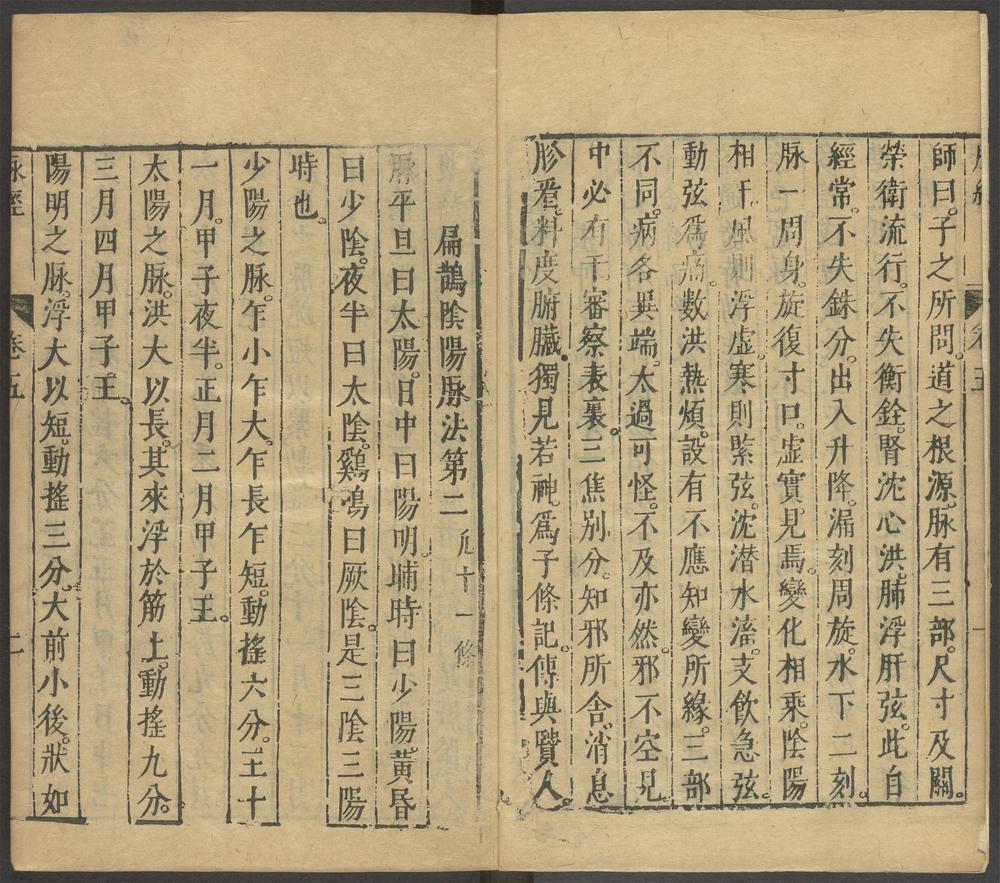 師曰。子之所問。道之根源。脉有三部。尺寸及關。
榮衛流行。不失衡銓。腎沈心洪。肺浮肝弦。此自
經常。不失銖分。出入升降。漏刻周旋。水下二刻。
脉一周身。旋復寸口。虛實見焉。變化相乘。陰陽
相干。風則浮虛。寒則緊弦。沈潜水滀。支飲急弦。
動弦爲痛。數洪熱煩。設有不應。知變所緣。三部
不同。病各異端。太過可怪。不及亦然。邪不空見。
中必有干。審察表裏。三焦別分。知邪所舍。消息
胗看。料度腑臟。獨見若神。爲子條記。傳與賢人。
扁鵲陰陽脉法第二 凡十一條
脉平旦曰太陽。日中曰陽明。晡時曰少陽。黃昏
曰少陰。夜半曰太陰。鷄鳴曰厥陰。是三陰三陽
時也。
少陽之脉。乍小乍大。乍長乍短。動搖六分。王十
一月。甲子夜半。正月二月甲子王。
太陽之脉。洪大以長。其來浮於筋上。動搖九分。
三月四月甲子王。
陽明之脉。浮大以短。動搖三分。大前小後。狀如
脉經 卷五 二